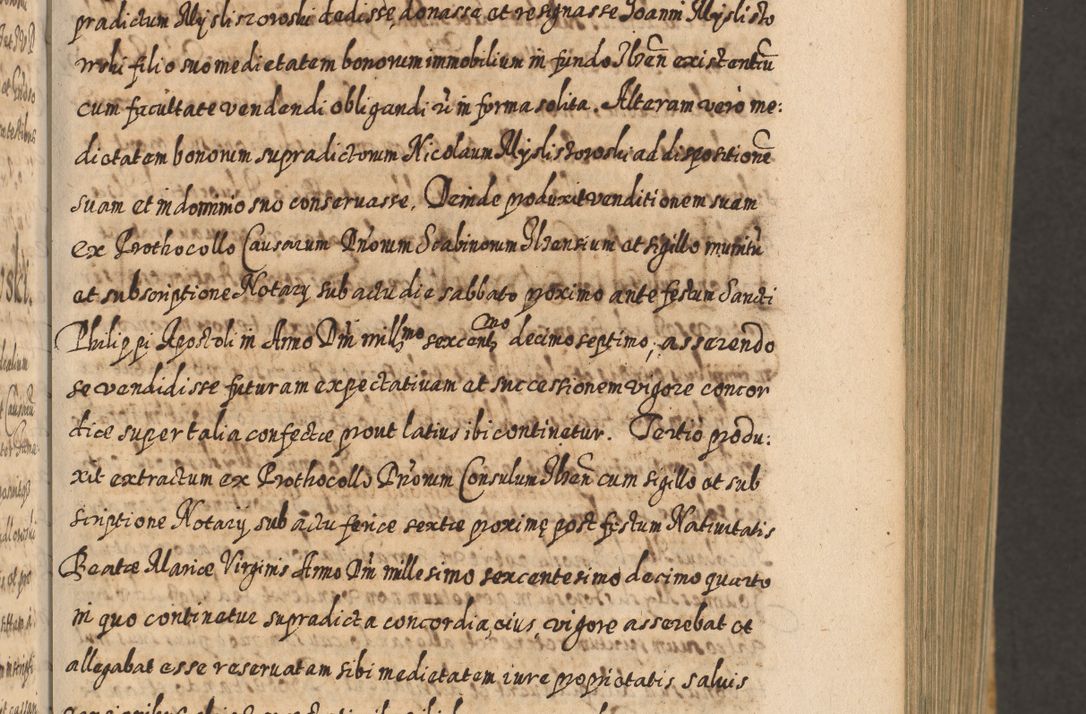 pradictum Mysliszowski dedisse, donasse et resignasse Joanni Myslisto
wski filio suo medietatem bonorum immobilium in fundo Ilzen existentiu
cum facultate vendendi obligandi in forma solita. Alteram vero me:
dietatem bonorum supradictorum Nicolaum Myslistowski ad dispositione
suam et in dominio suo conservasse. Deinde produxit venditionem suam
ex Prothocollo Causarum Dnorum Scabinorum Ilzensium et sigillo munitu
et subscriptione Notary sub actu die sabbato proximo ante festum Sancti
Philippi Apostoli in Anno Dni millmo sexcentmo decimo septimo, asserendo
se vendidisse futuram expectativam et successionem vigore concor
diæ super talia confectæ prout latius ibi continetur. Tertio produ:
xit extractum ex Prothocollo Dnorum Consulum Ilzen cum sigillo et sub
scriptione Notary, sub actu feriæ sextæ proxime post festum Nativitatis
Beatæ Mariæ Virginis Anno Dni millesimo sexcentesimo decimo quarto
in quo continetur supradicta concordia, cuius, vigore asserebat et
allegabat esse reservatam sibi medietatem iure proprietatis salvis